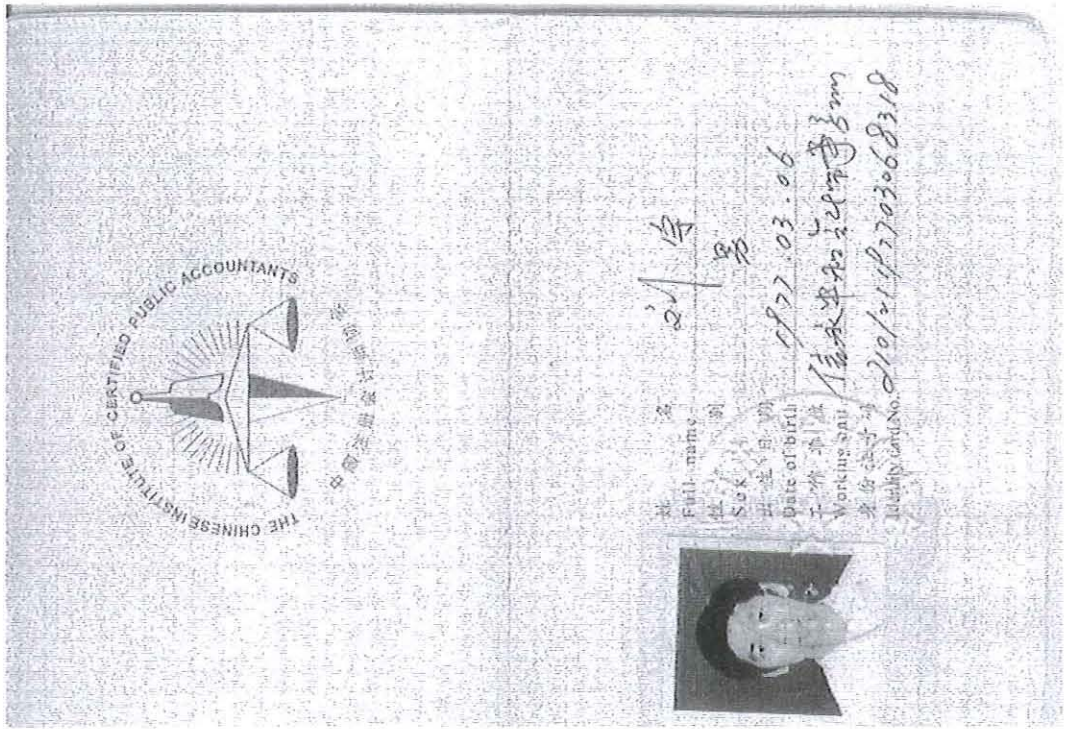 THE CHINESE INSTITUTE OF CERTIFIED PUBLIC ACCOUNTANTS
中国注册会计师协会
姓 名
Full name
性 别
Sex 男
出生日期
Date of birth 1977.03.06
工作单位
Working unit 信永中和会计师事务所
身份证号码
Identity card No. 210121197703068318